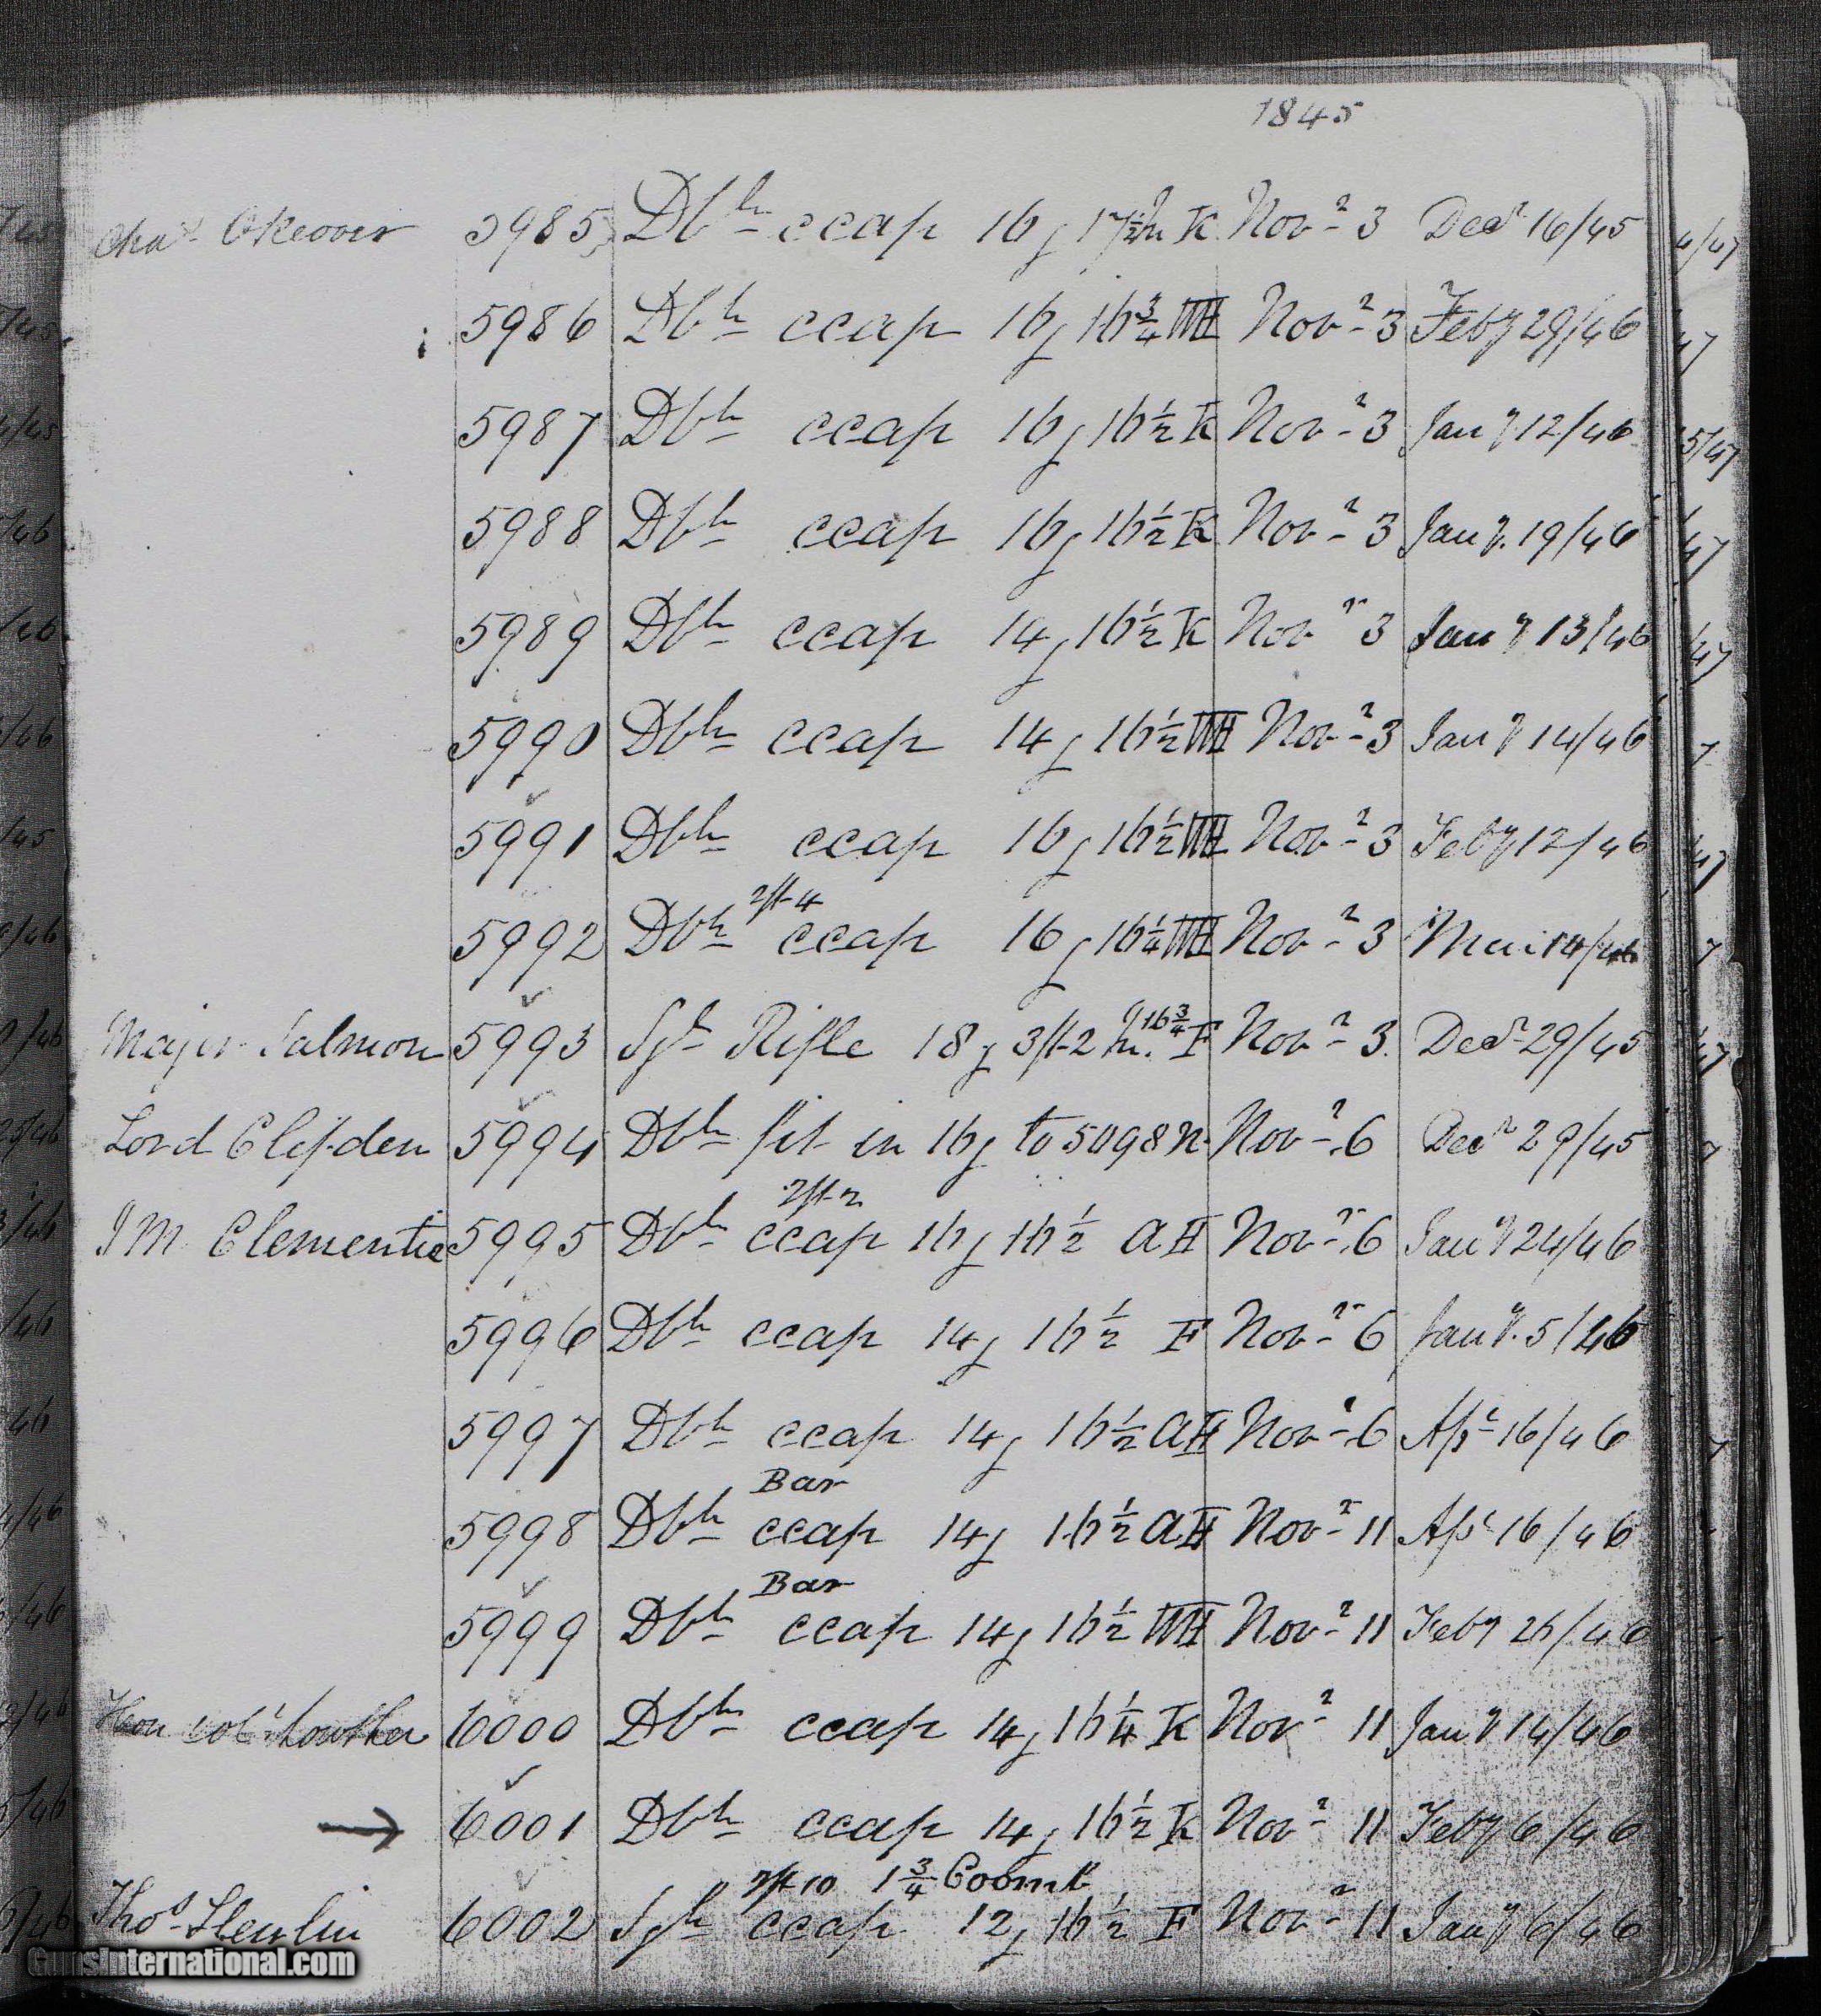 1845
Chas Okeover 5985 Dble ccap 16g 17½ In K Novr 3 Decr 16/45
5986 Dble ccap 16g 16¾ Novr 3 Feby 29/46
5987 Dble ccap 16g 16½ K Novr 3 Jany 12/46
5988 Dble ccap 16g 16½ K Novr 3 Jany 19/46
5989 Dble ccap 14g 16½ K Novr 3 Jany 13/46
5990 Dble ccap 14g 16½ Novr 3 Jany 14/46
5991 Dble ccap 16g 16½ Novr 3 Feby 12/46
2ft-4
5992 Dble ccap 16g 16¼ Novr 3 14/46
Major Salmon 5993 Sgle Rifle 18g 3ft-2 In. 16¾ F Novr 3 Decr 29/45
Lord Clifden 5994 Dble fit in 16g to 5098 Novr 6 Decr 29/45
2ft-2
J M Clementie 5995 Dble ccap 16g 16½ A H Novr 6 Jany 24/46
5996 Dble ccap 14g 16½ F Novr 6 Jany 5/46
5997 Dble ccap 14g 16½ A H Novr 6 Apl 16/46
Bar
5998 Dble ccap 14g 16½ A H Novr 11 Apl 16/46
Bar
5999 Dble ccap 14g 16½ Novr 11 Feby 26/46
Hon Col Lowther 6000 Dble ccap 14g 16¼ K Novr 11 Jany 14/46
→ 6001 Dble ccap 14g 16½ K Novr 11 Feby 6/46
2ft 10 1¾
Thos 6002 Sgle ccap 12g 16½ F Novr 11 Jany 6/46
GunsInternational.com